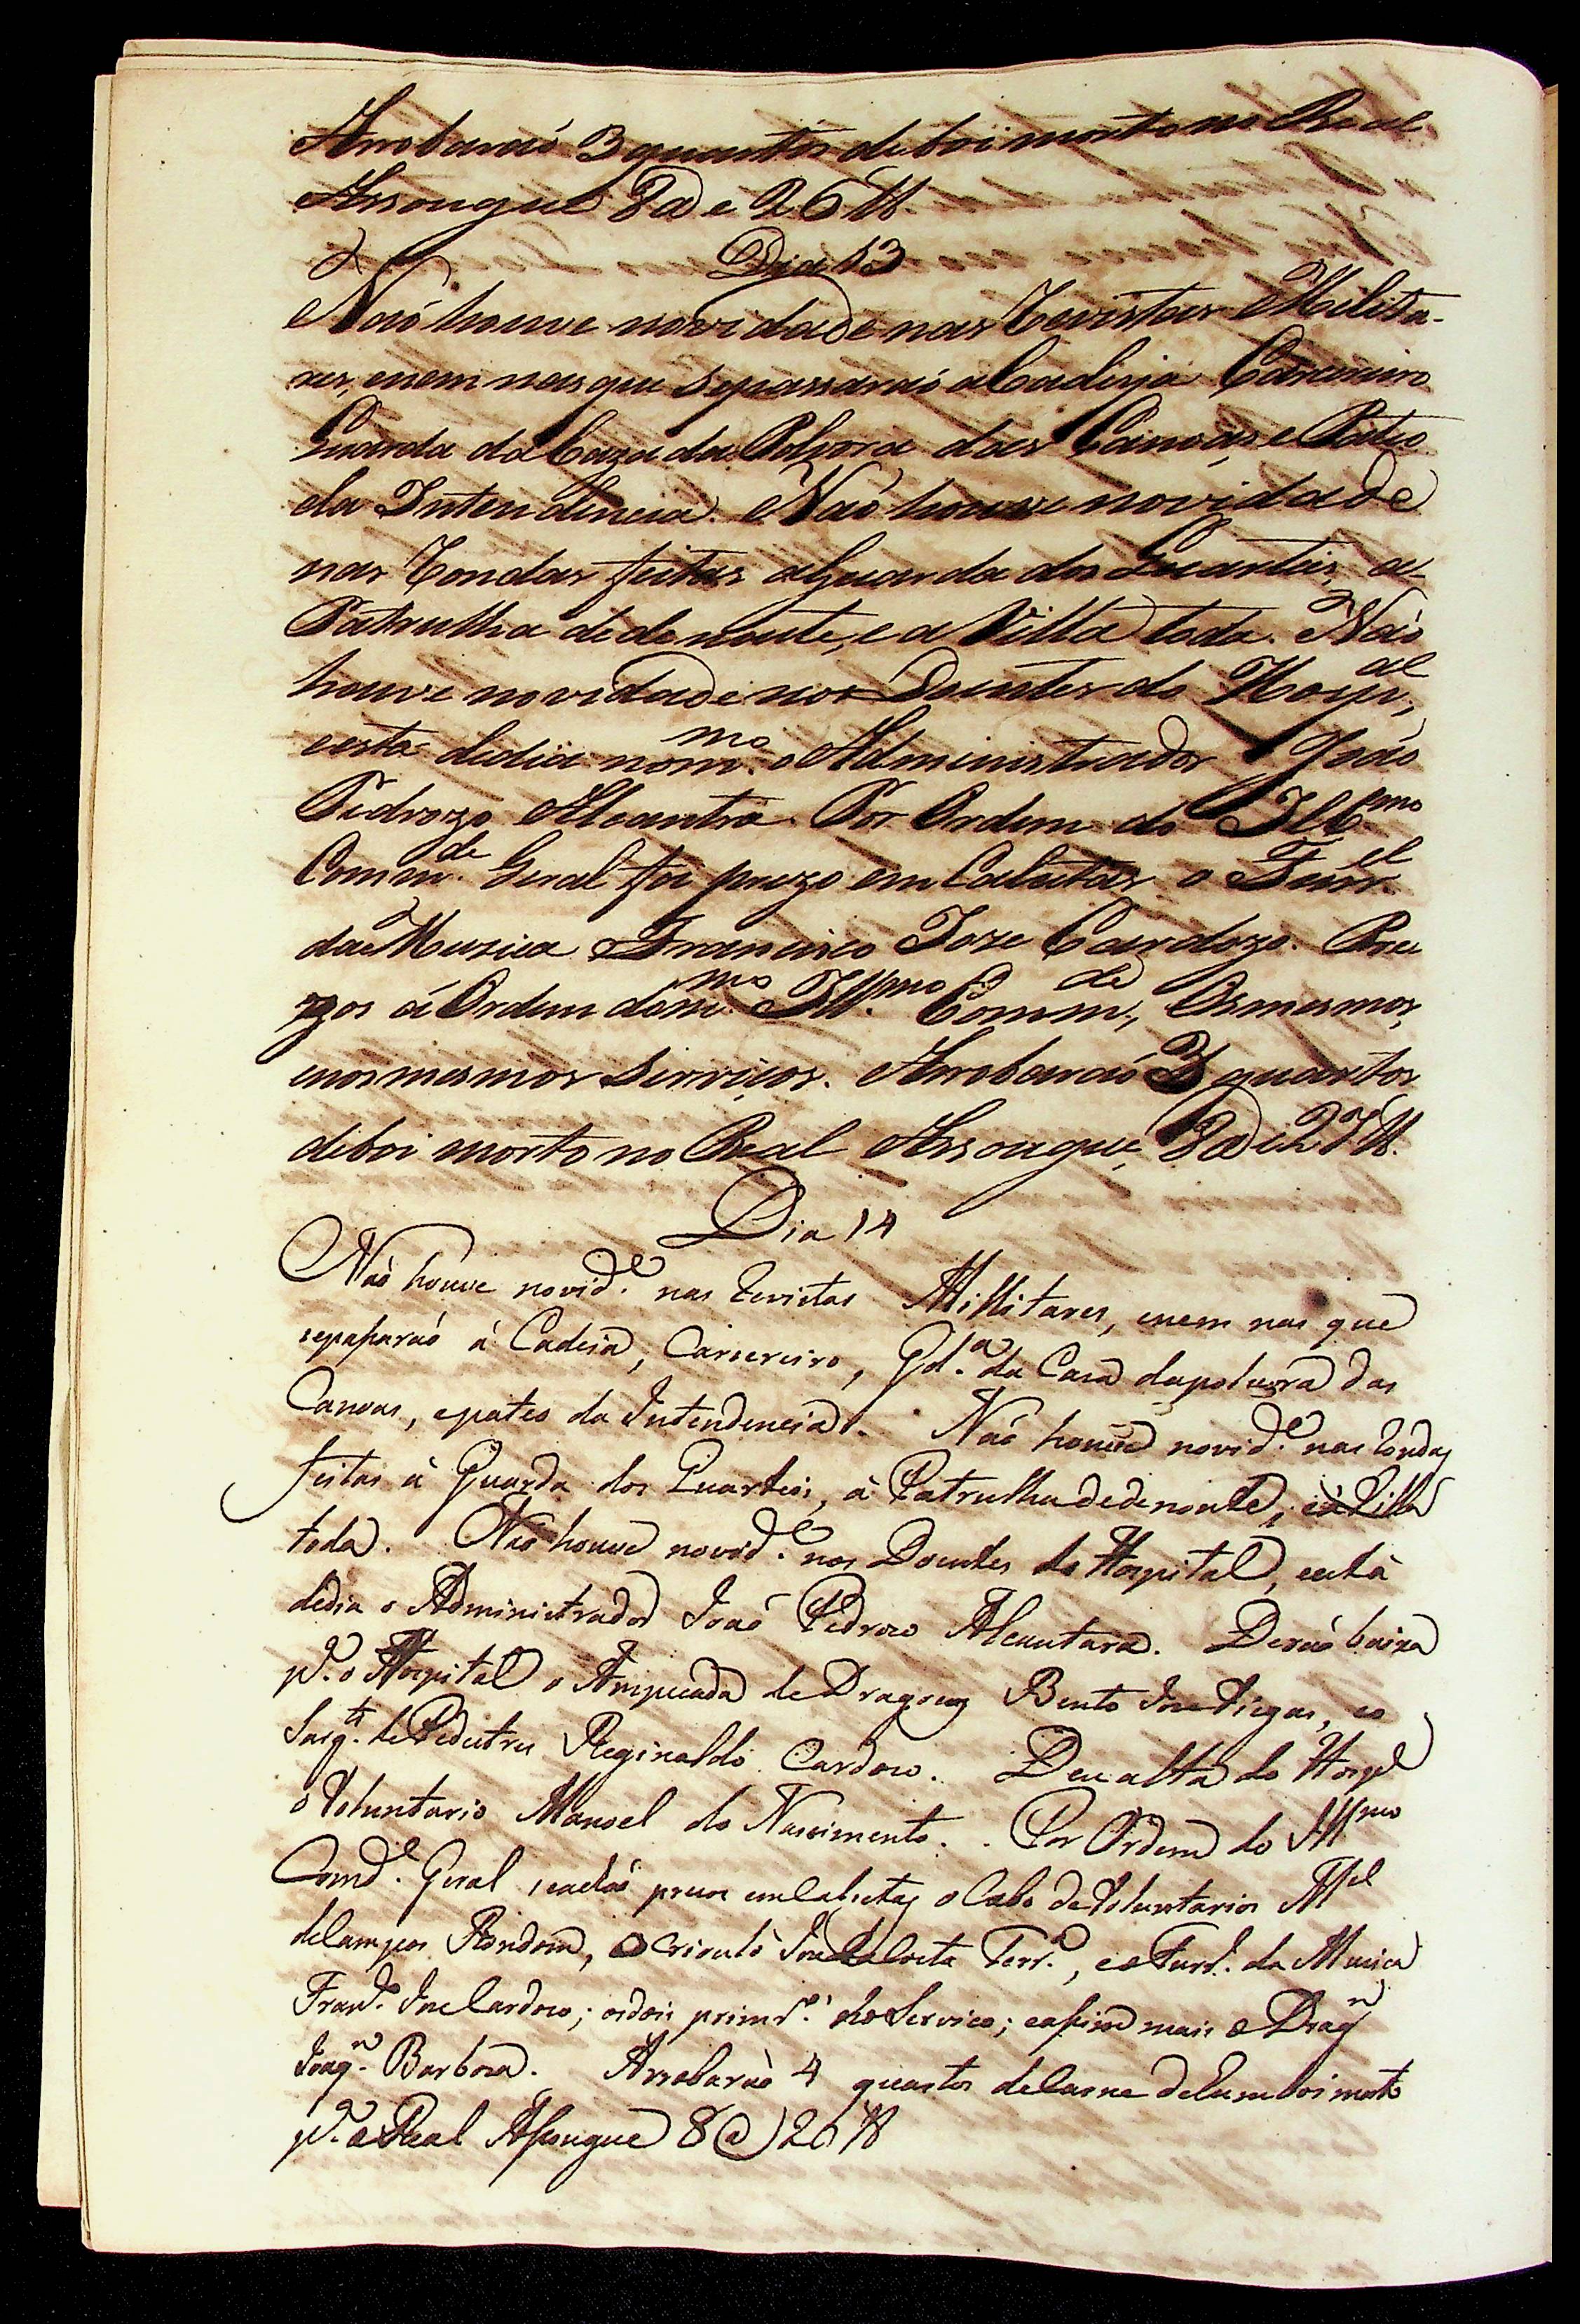 Arrobaraó 3 quartos de boi morto no Real
Assougue 8@ e 26 ℔.
Dia 13
Naó houve novidade nas Revistas Milita-
res, enem nas que sepassaraó a Cadeya Carcereiro
Guarda da Caza da Polvora das Canoas, e Patio
da Intendencia. Naó houve novidade
nas Rondas feitas aGuarda dos Quarteis, a
Patrulha dedenoute, e a Villa toda. Naó
houve novidade nos Doentes do Hosp.al,
eesta dedia nom.mo o Administrador Joaó
Pedrozo Alcantra. Por Ordem do Ill.mo
Comm.de Geral foi prezo em Calsetas o Furr.el
da Muzica Francisco Joze Cardozo. Pre
zos á Ordem dom.mo Ill.mo Comm.de, Osmesmos,
enosmesmos Servicos. Arrobaraó 3 quartos
deboi morto no Real Assougue, 8@ e 27 ℔.
Dia 14
Naó houve novid.e nas Revistas Millitares, enem nas que
sepaſsaraó á Cadeia, Carsereiro, Gd.a da Casa dapolvora das
Canoas, epateo da Intendencia. Naó houve novid.e nas Rondas
feitas á Guarda dos Quarteis, á Patrulha dedenoute, eá Villa
toda. Naó houve novid.e nos Doentes do Hospital, está
dedia o Administrador Joaó Pedrozo Alcantara. Deraó baixa
p.a o Hospital o Anspeçada de Dragoens Bento Joze Viegas, eo
Sarg.to de Pedestres Reginaldo Cardozo. Deu alta do Hosp.l
o Voluntario Manoel do Nascimento. Por Ordem do Ill.mo
Comd.e Geral, seachaó prezos emCalsetas o Cabo deVoluntarios M.el
deCampos Rondom, o Crioulo Joze da Costa Ferr.a, eo Furr.l da Musica
Fran.co Joze Cardozo; osdois primr.os no Servico; eaſsim mais o Drag.m
Joaq.m Barboza. Arrobaraó 4 quartos deCarne dehum boi morto
p.a o Real Aſsougue 8@ 26 ℔